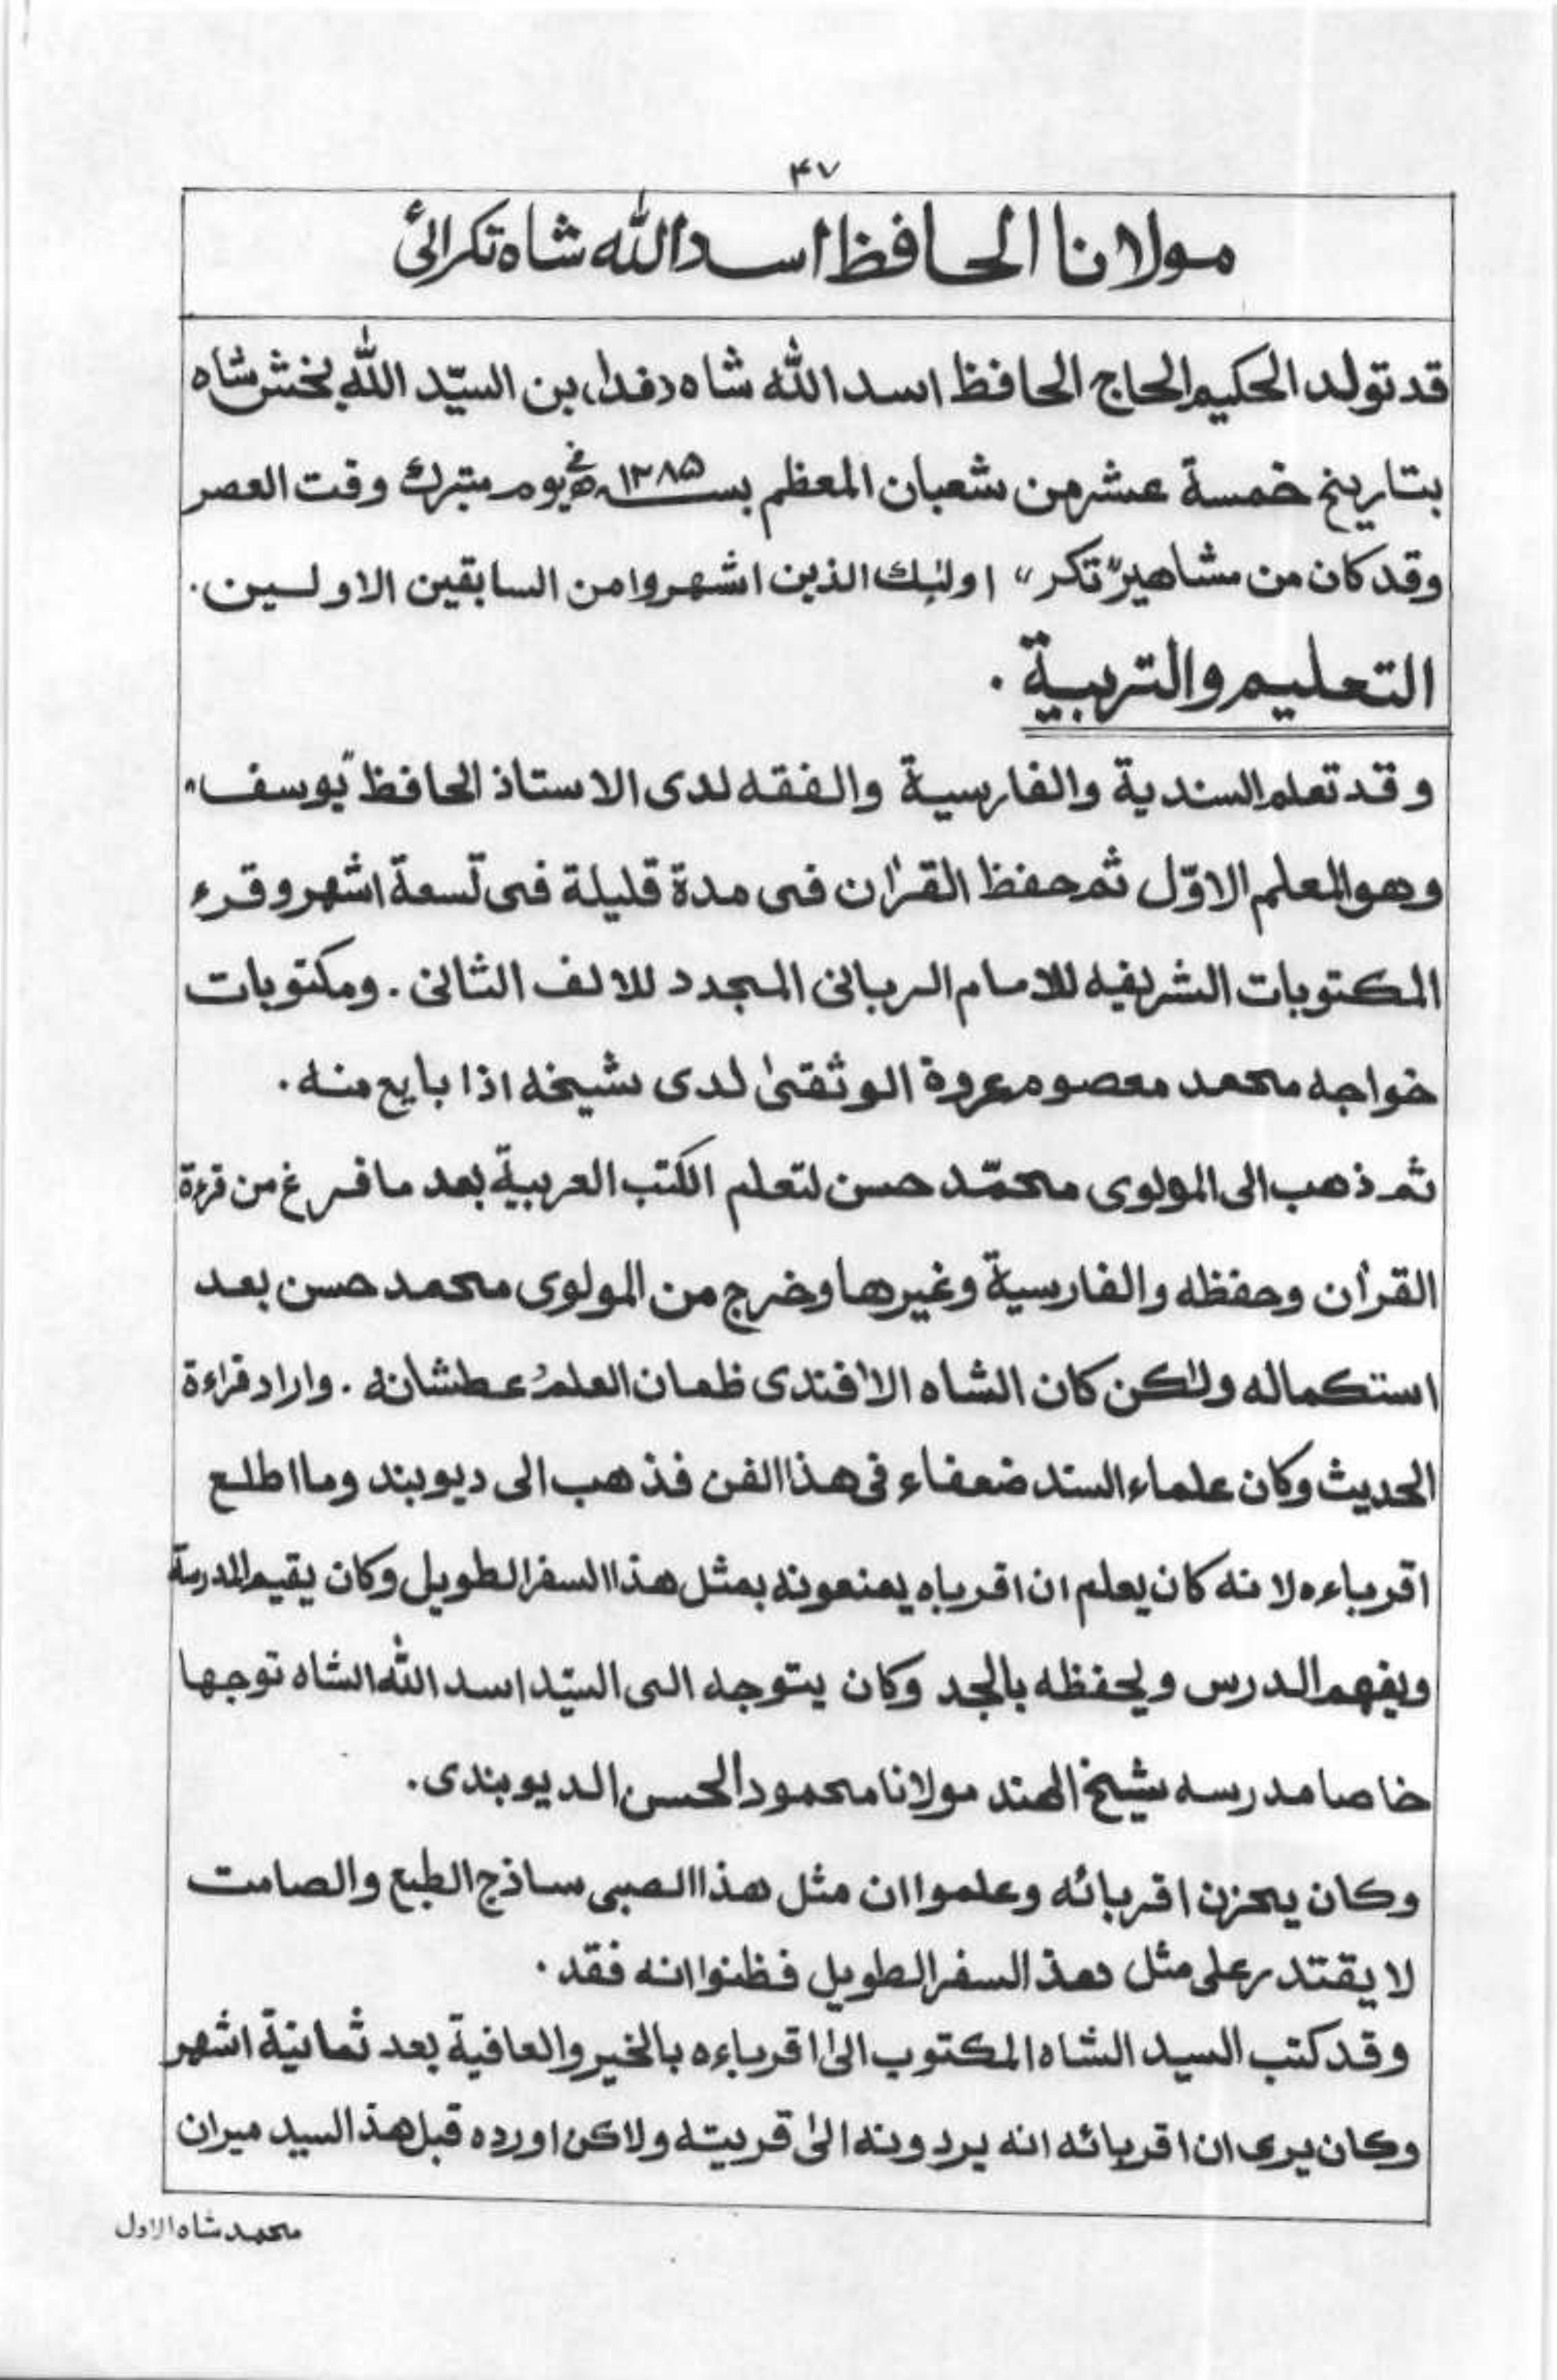 ۴۷
مولانا الحافظ اسد الله شاه تکرائی
قد تولد الحکیم الحاج الحافظ اسد الله شاه (فدا) بن السیّد الله بخش شاه
بتاریخ خمسة عشر من شعبان المعظم بسـ ۱۲۸۵ـنه فی یوم متبرك وقت العصر
وقد کان من مشاهیر "تکر" اولئك الذین اشهروا من السابقین الاولین.
التعلیم والتربیة .
وقد تعلم السندیة والفارسیة والفقه لدی الاستاذ الحافظ "یوسف"
وهو المعلم الاوّل ثم حفظ القرٰان فی مدة قلیلة فی تسعة اشهر وقرء
المکتوبات الشریفیه للامام الربانی المجدد للالف الثانی . ومکتوبات
خواجه محمد معصوم عروة الوثقیٰ لدی شیخه اذا بایع منه .
ثم ذهب الی المولوی محمّد حسن لتعلم الکتب العربیة بعد ما فرغ من قرءة
القرأن وحفظه والفارسیة وغیرها وخرج من المولوی محمد حسن بعد
استکماله ولٰکن کان الشاه الأفندی ظمان العلم عطشانه . واراد قراءة
الحدیث وکان علماء السند ضعفاء فی هذا الفن فذهب الی دیوبند وما اطلع
اقرباءه لانه کان یعلم ان اقرباه یمنعونه بمثل هذا السفر الطویل وکان یقیم المدرسة
ویفهم الدرس ویحفظه بالجد وکان یتوجه الی السیّد اسد الله الشاه توجها
خاصا مدرسه شیخ الهند مولانا محمود الحسن الدیوبندی.
وکان یحزن اقربائه وعلموا ان مثل هذا الصبی ساذج الطبع والصامت
لا یقتدر علی مثل هذ السفر الطویل فظنوا انه فقد .
وقد کتب السید الشاه المکتوب الیٰ اقرباءه بالخیر والعافیة بعد ثمانیة اشهر
وکان یری ان اقربائه انه یردونه الیٰ قریته ولاکن اورده قبل هذ السید میران
محمد شاه الاول